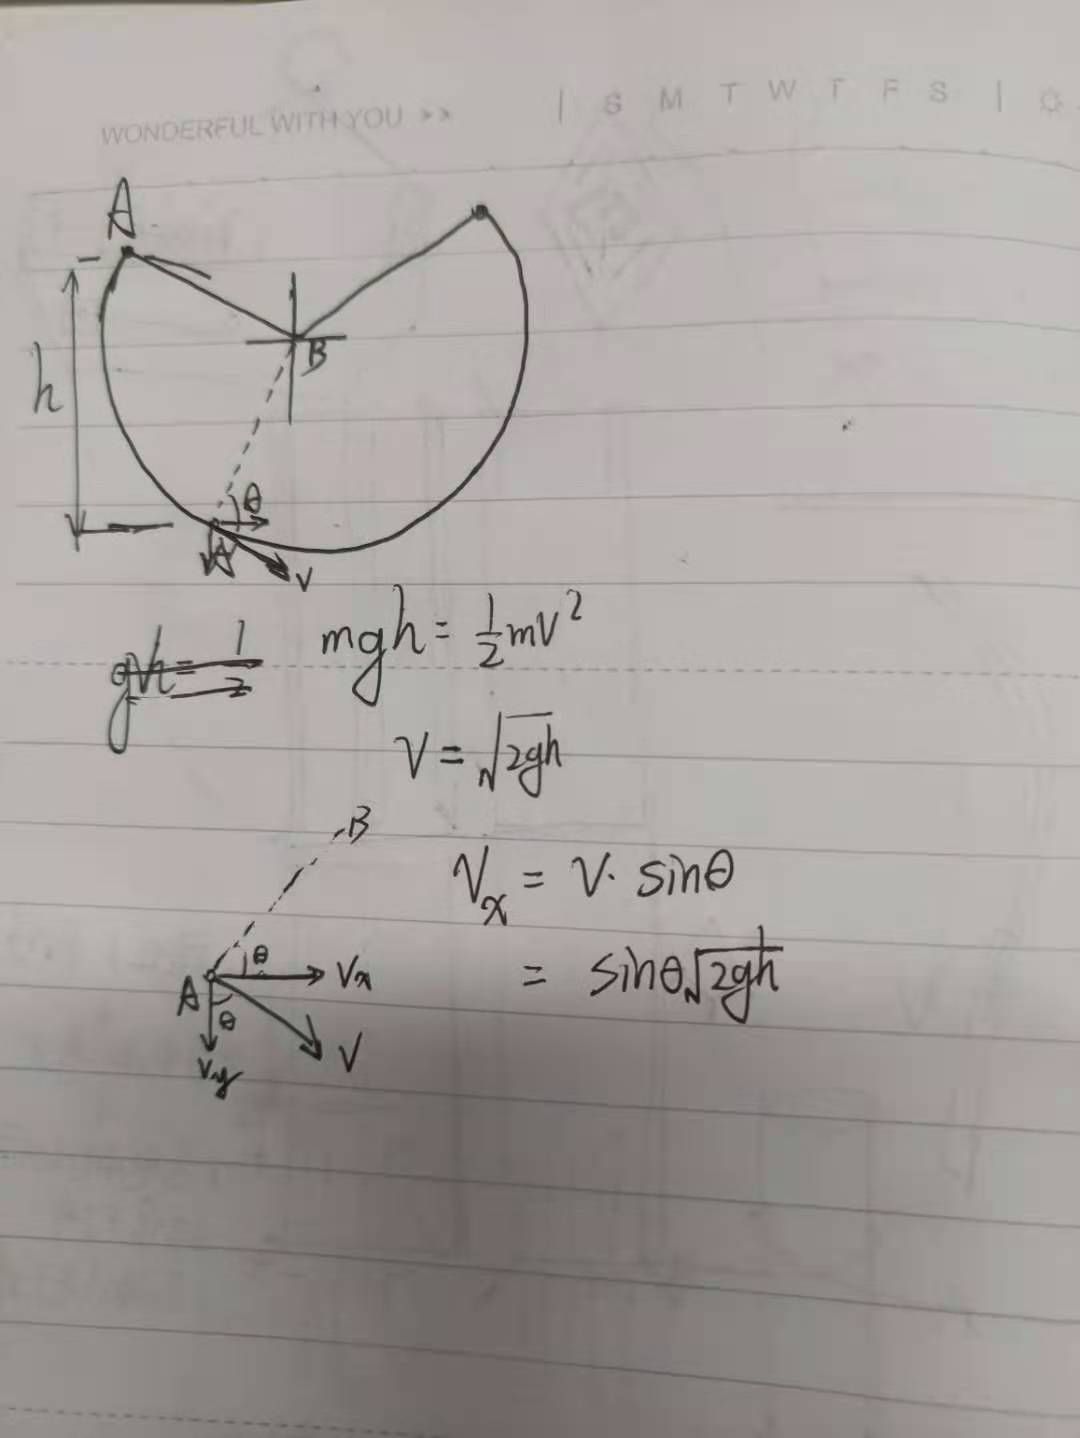 WONDERFUL WITH YOU >> | S M T W T F S |
A
B
h
θ
A
V
gh = 1/2
mgh = 1/2 mV²
V = √2gh
B
Vx = V · sinθ
θ
Vx
= sinθ√2gh
A
θ
V
Vy